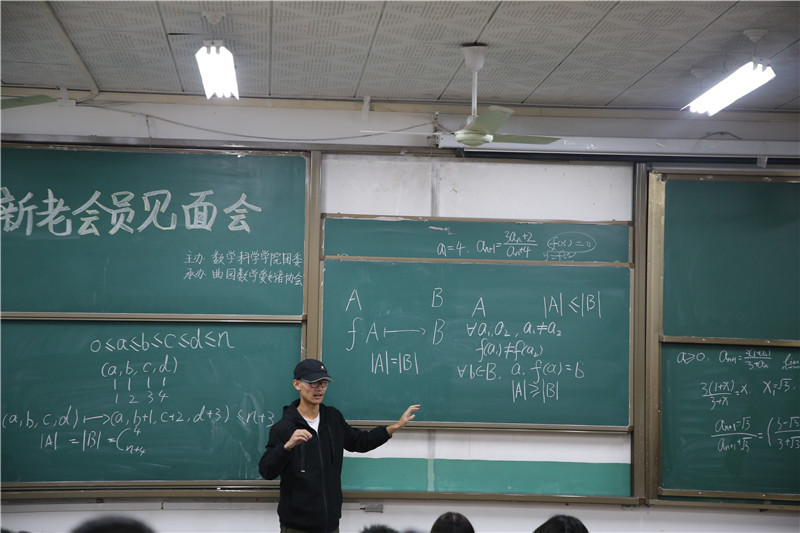 新老会员见面会
主办 数学科学学院团委
承办 曲园数学爱好者协会
0≤a≤b≤c≤d≤n
(a, b, c, d)
1 1 1 1
1 2 3 4
(a, b, c, d) ↦ (a, b+1, c+2, d+3) ≤ n+3
|A| = |B| = C⁴ₙ₊₄
a₁=4, aₙ₊₁ = (3aₙ+2)/(aₙ+4)
A B
f A ↦ B
|A|=|B|
A |A|≤|B|
∀a₁, a₂, a₁≠a₂
f(a₁)≠f(a₂)
∀b∈B, a, f(a)=b
|A|≥|B|
3(1+x)/(3+x) = x x₁=√3
(aₙ₊₁-√3)/(aₙ₊₁+√3) = (3-√3)/(3+√3)